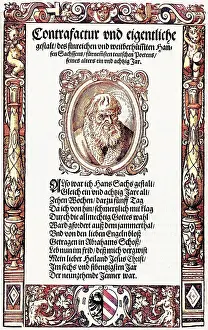 Contrafactur vnd eigentliche
gestalt / des sinreichen vnd weitberhümbten Han-
sen Sachssens / fürnemsten teutschen Poetens /
seines alters ein vnd achtzig Jar.
Also war ich Hans Sachs gestalt /
Gleich ein vnd achtzig Jare alt
Zehen Wochen / darzu fünff Tag
Da ich von hin / schmertzlich mit klag
Durch die allmechtig Gottes wahl
Ward gfordert auß dem jammerthal /
Vnd von den lieben Engeln bloß
Getragen in Abrahams Schoß /
Leb nun im frid / deß mich vergwist
Mein lieber Heiland Jesus Christ /
Im sechs vnd sibentzigsten Jar
Der neunzehend Jenner war.